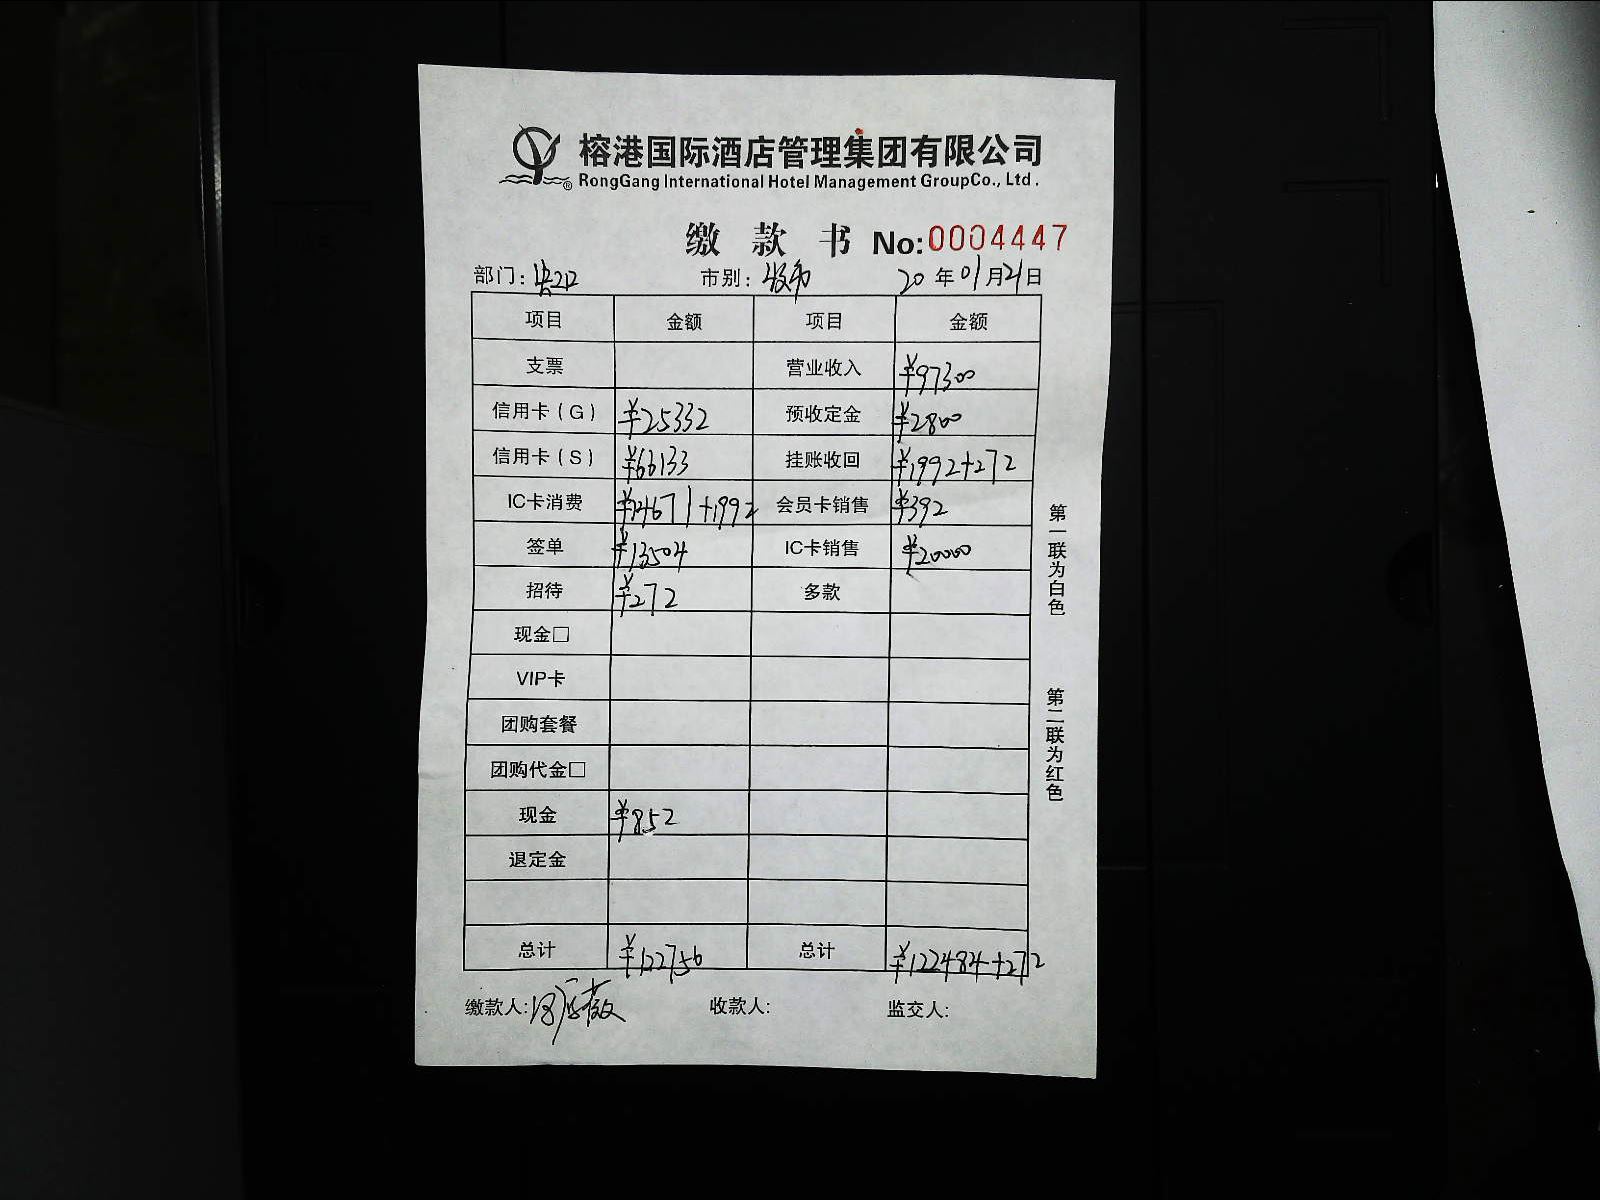 榕港国际酒店管理集团有限公司
RongGang International Hotel Management GroupCo., Ltd.
缴款书 No:0004447
部门: 市别: 20年01月21日
项目 金额 项目 金额
支票 营业收入 ¥97300
信用卡(G) ¥25332 预收定金 ¥2800
信用卡(S) ¥66133 挂账收回 ¥1992+272
IC卡消费 ¥14671+1992 会员卡销售 ¥392
签单 ¥13504 IC卡销售 ¥20000
招待 ¥272 多款
现金□
VIP卡
团购套餐
团购代金□
现金 ¥852
退定金
总计 ¥122756 总计 ¥122484+272
缴款人: 收款人: 监交人:
第一联为白色
第二联为红色